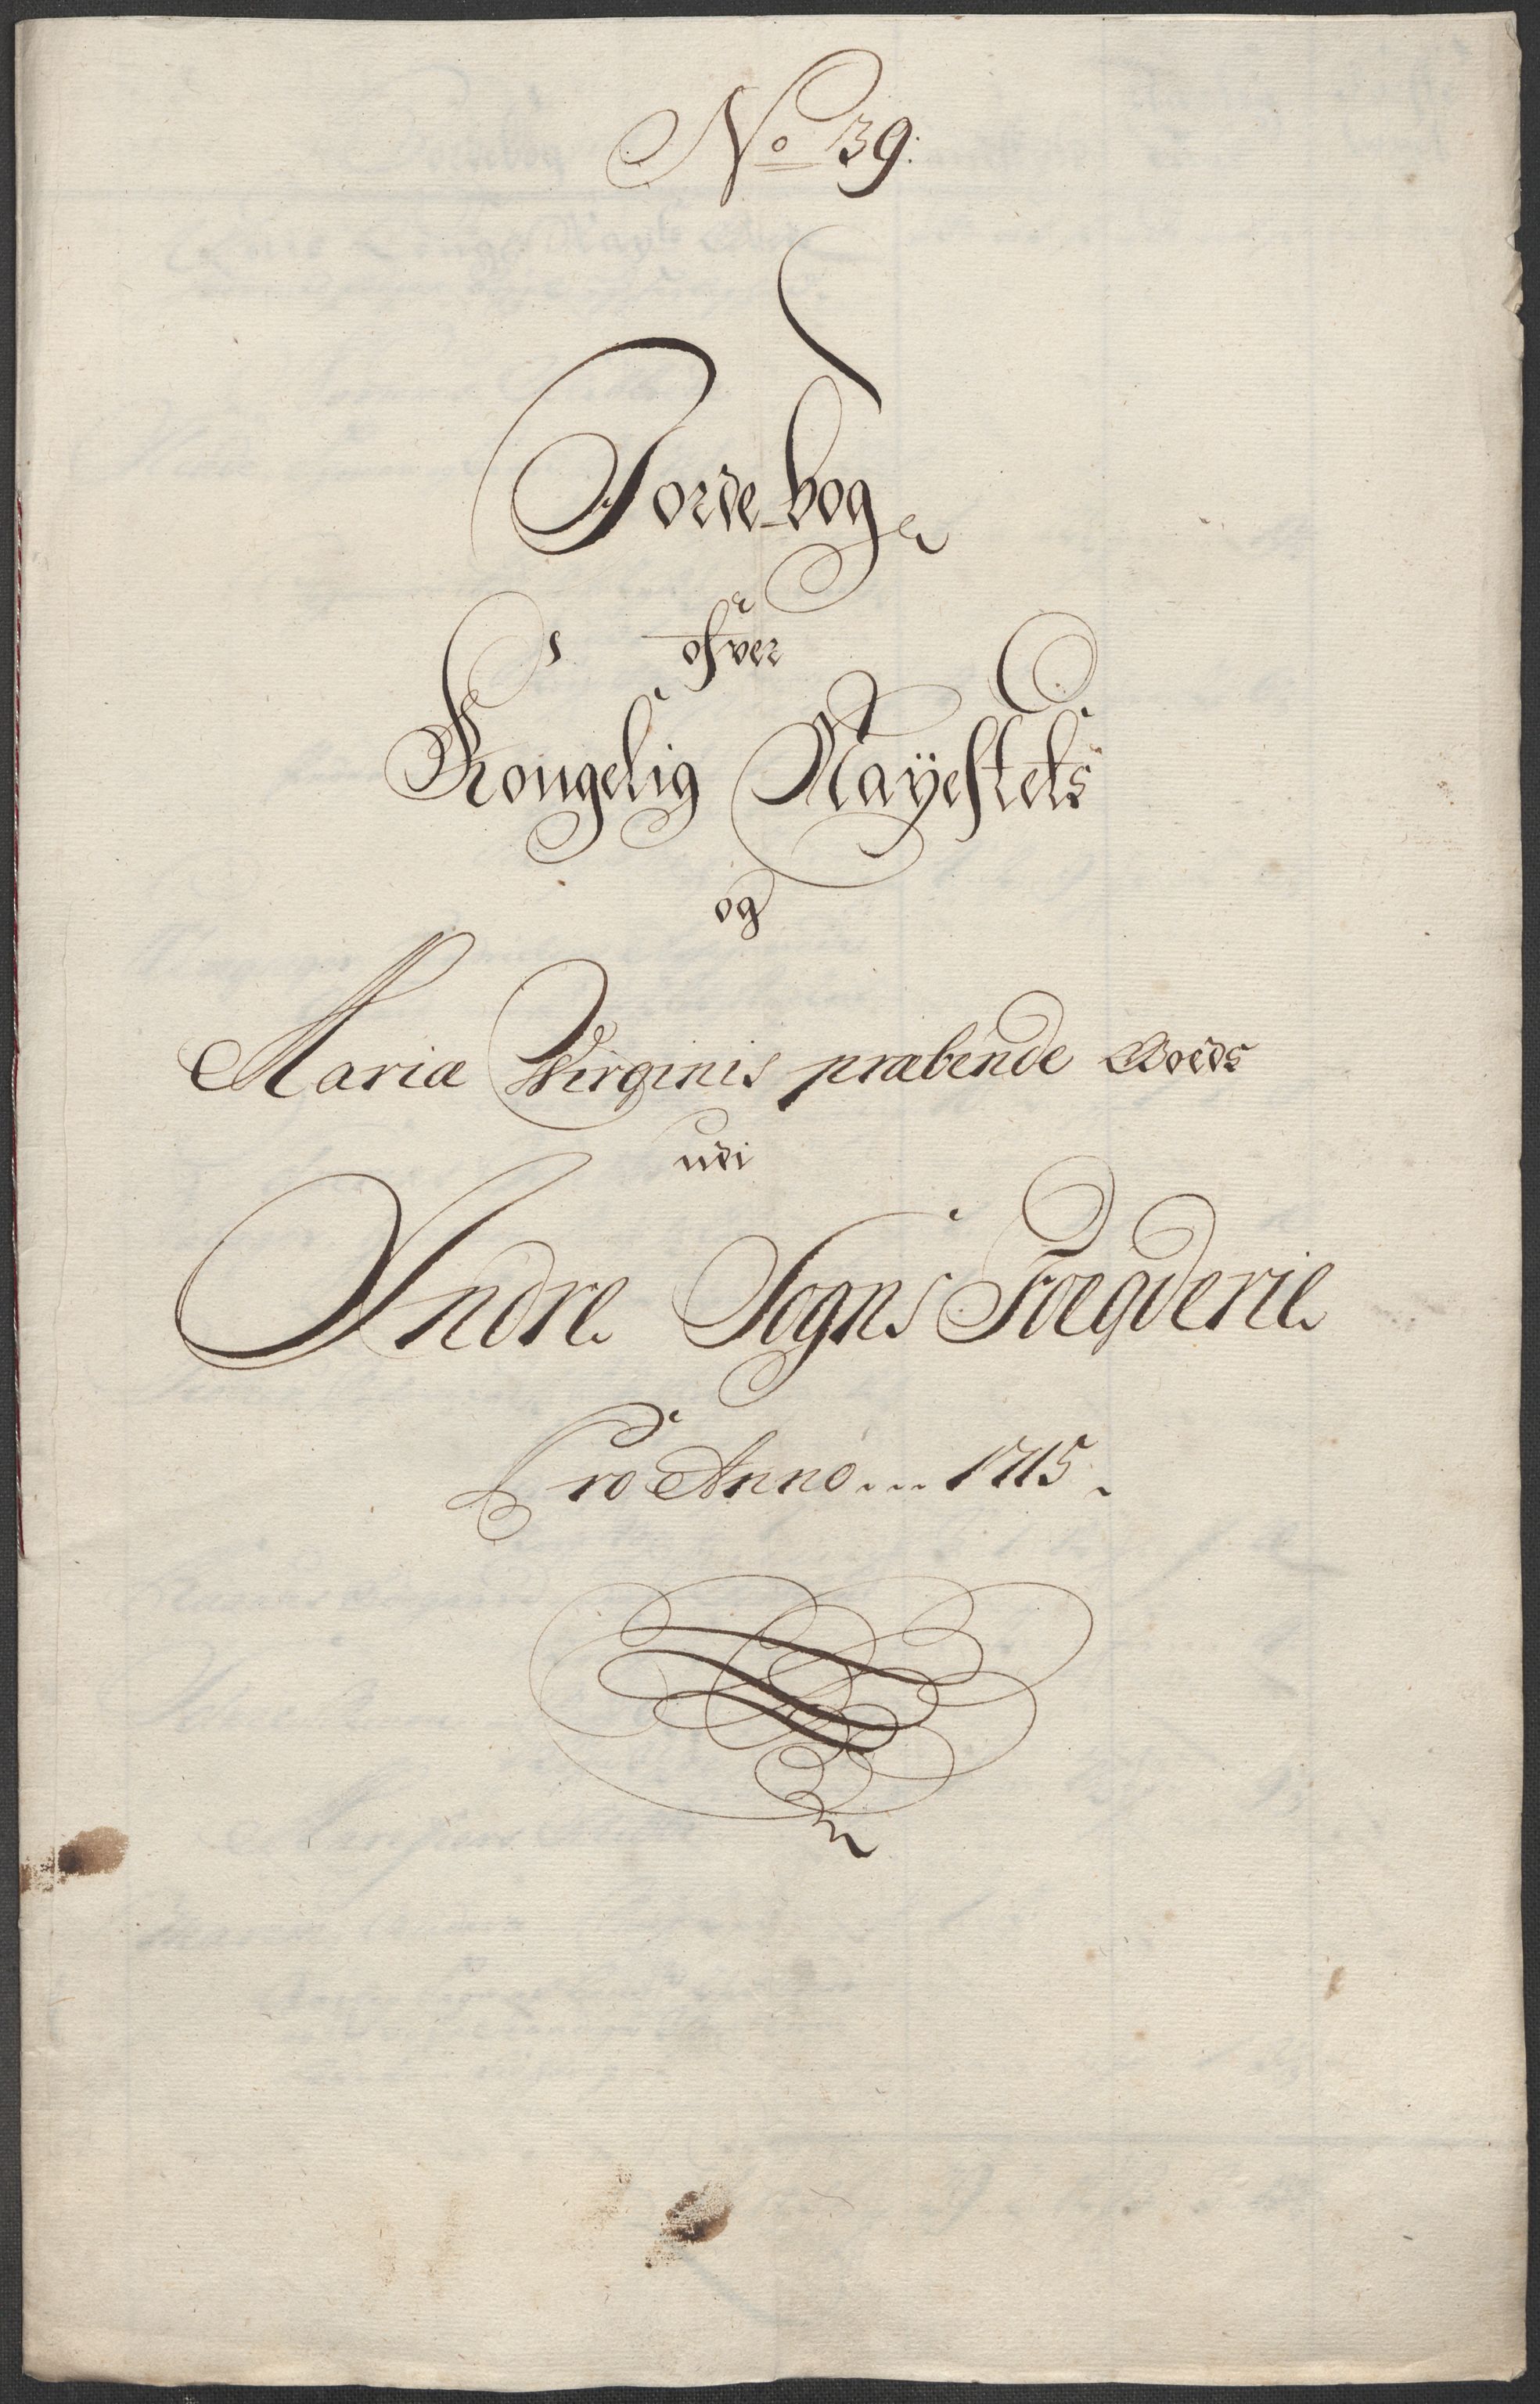 No 39:
Jorde-bog
ofver
Kongelig Mayestets
og
Mariæ Virginis præbende Goeds
udi
Indre Sogns Foegderie
Pro Anno... 1715.